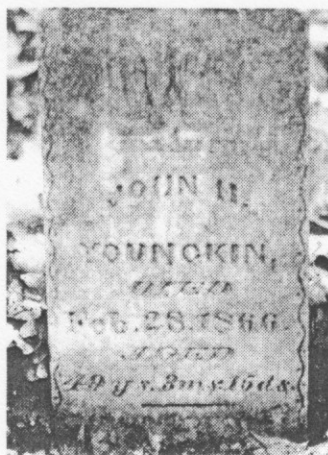 JOHN H.
YOUNGKIN,
DIED
Feb. 28. 1866.
AGED
49 ys. 3ms. 15ds.